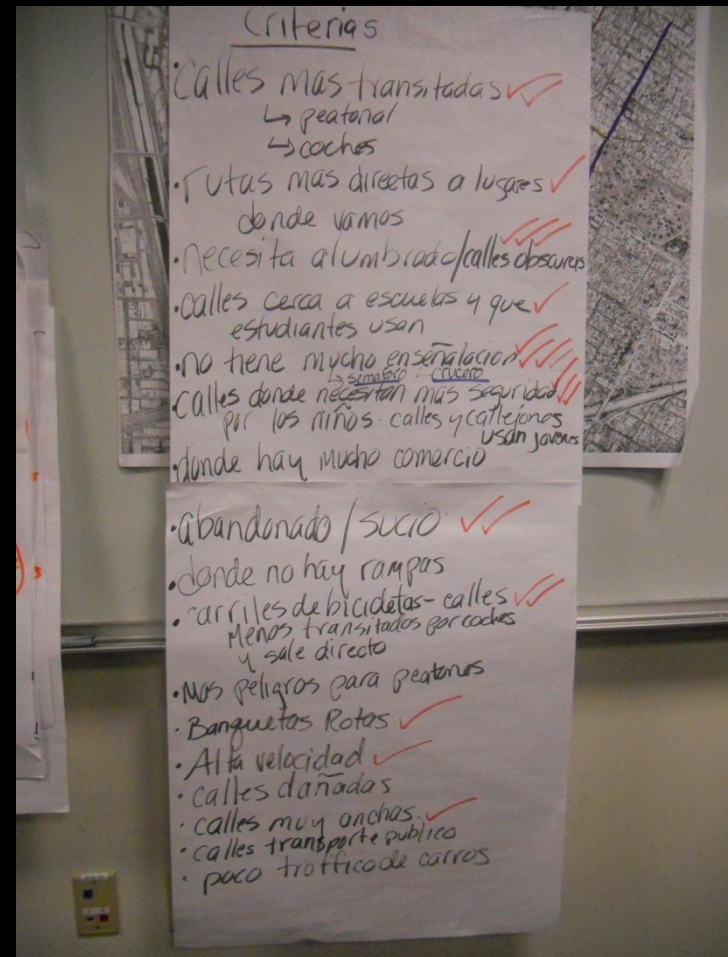 Criterias
• Calles mas transitadas
↳ peatonal
↳ coches
• rutas mas directas a lugares
donde vamos
• necesita alumbrado/calles obscuras
• calles cerca a escuelas y que
estudiantes usan
• no tiene mucho enseñalacion
↳ semaforo - crucero
• calles donde necesitan mas seguridad
por los niños - calles y callejones
usan jovenes
• donde hay mucho comercio
• abandonado / sucio
• donde no hay rampas
• carriles de bicicletas - calles
Menos transitados por coches
y sale directo
• Mas peligros para peatones
• Banquetas Rotas
• Alta velocidad
• calles dañadas
• calles muy anchas
• calles transporte publico
• poco traffico de carros